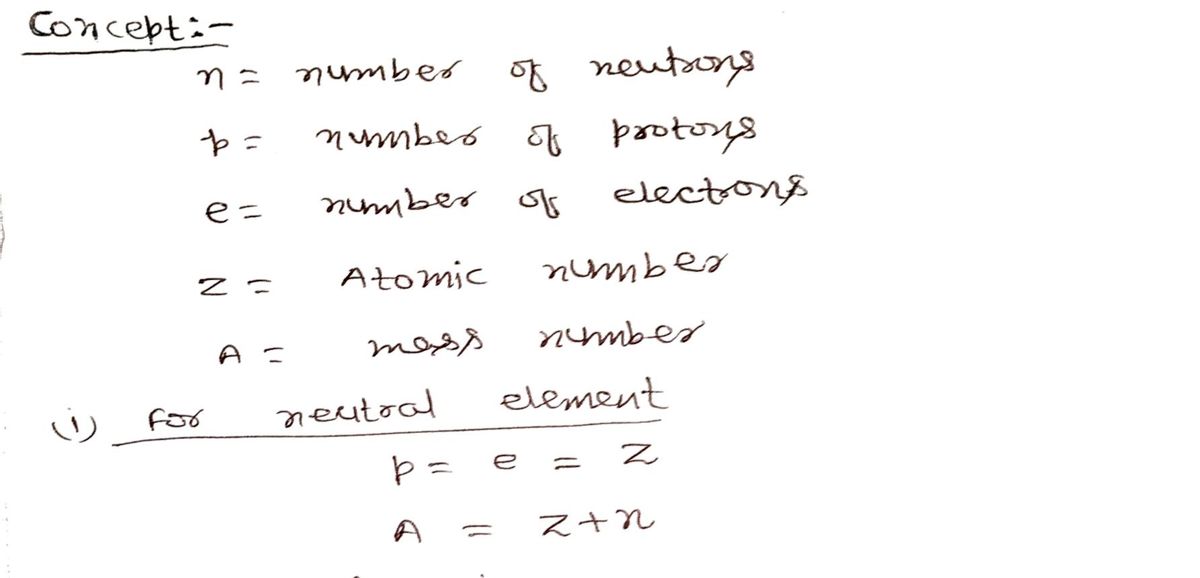 Concept:-
n = number of neutrons
p = number of protons
e = number of electrons
z = Atomic number
A = mass number
(i) for neutral element
p = e = z
A = z+n